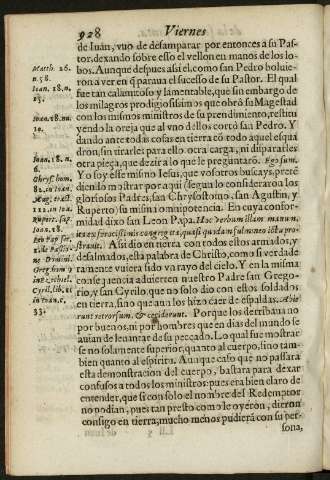 928 Viernes
de Iuan, vuo de desamparar por entonces a su Pas-
tor, dexando sobre esso el vellon en manos de los lo-
bos. Aunque despues assi el, como san Pedro boluie-
ron a ver en q̃ paraua el sucesso de su Pastor. El qual
fue tan calamitoso y lamentable, que sin embargo de
los milagros prodigiosissimos que obrò su Magestad
con los mismos ministros de su prendimiento, restitu
yendo la oreja que al vno dellos cortò san Pedro. Y
dando ante todas cosas en tierra cõ todo aquel esqua
dron, sin tirarles para ello otra carga, ni dispararles
otra pieça, que dezir a lo que le preguntarõ. Ego sum.
Yo soy esse mismo Iesus, que vosotros buscays, pretē
diendo mostrar por aqui (segun lo consideraron los
gloriosos Padres, san Chrysostomo, san Agustin, y
Ruperto) su misma omnipotencia. En cuya confor-
midad dixo san Leon Papa. Hac verbum illam manum,
ex ferocissimis congregata, quasi quodam fulmineo ictu pro-
strauit. Assi dio en tierra con todos estos armados, y
desalmados, esta palabra de Christo, como si verdade
ramente vuiera sido vn rayo del cielo. Y en la misma
consequencia aduierten nuestro Padre san Grego-
rio, y san Cyrilo, que no solo dio con estos soldados
en tierra, sino que aun los hizo caer de espaldas. Abie
runt retrorsum, & ceciderunt. Porque los derribaua no
por buenos, ni por hombres que en dias del mundo se
auian de leuantar de su pecado. Lo qual fue mostrar
se no solamente superior, quanto al cuerpo, sino tam-
bien quanto al espiritu. Aunque caso que no passara
esta demonstracion del cuerpo, bastara para dexar
confusos a todos los ministros: pues era bien claro de
entender, que si con solo el nombre del Redemptor
no podian, pues tan presto como le oyeron, dieron
consigo en tierra, mucho menos pudieran con su per-
sona,
Matth. 26.
n. 58.
Ioan. 18. n.
15.
Ioan. 18. nu.
10.
Ioan. 18. n.
6.
Chrys. hom.
82. in Ioan.
Aug. tract.
112. in Ioan.
Rupert. sup.
Ioan. 18.
Leo Pap. ser.
Greg. hom.
in Ezechiel.
Cyril. lib.
in Ioan. c.
33.